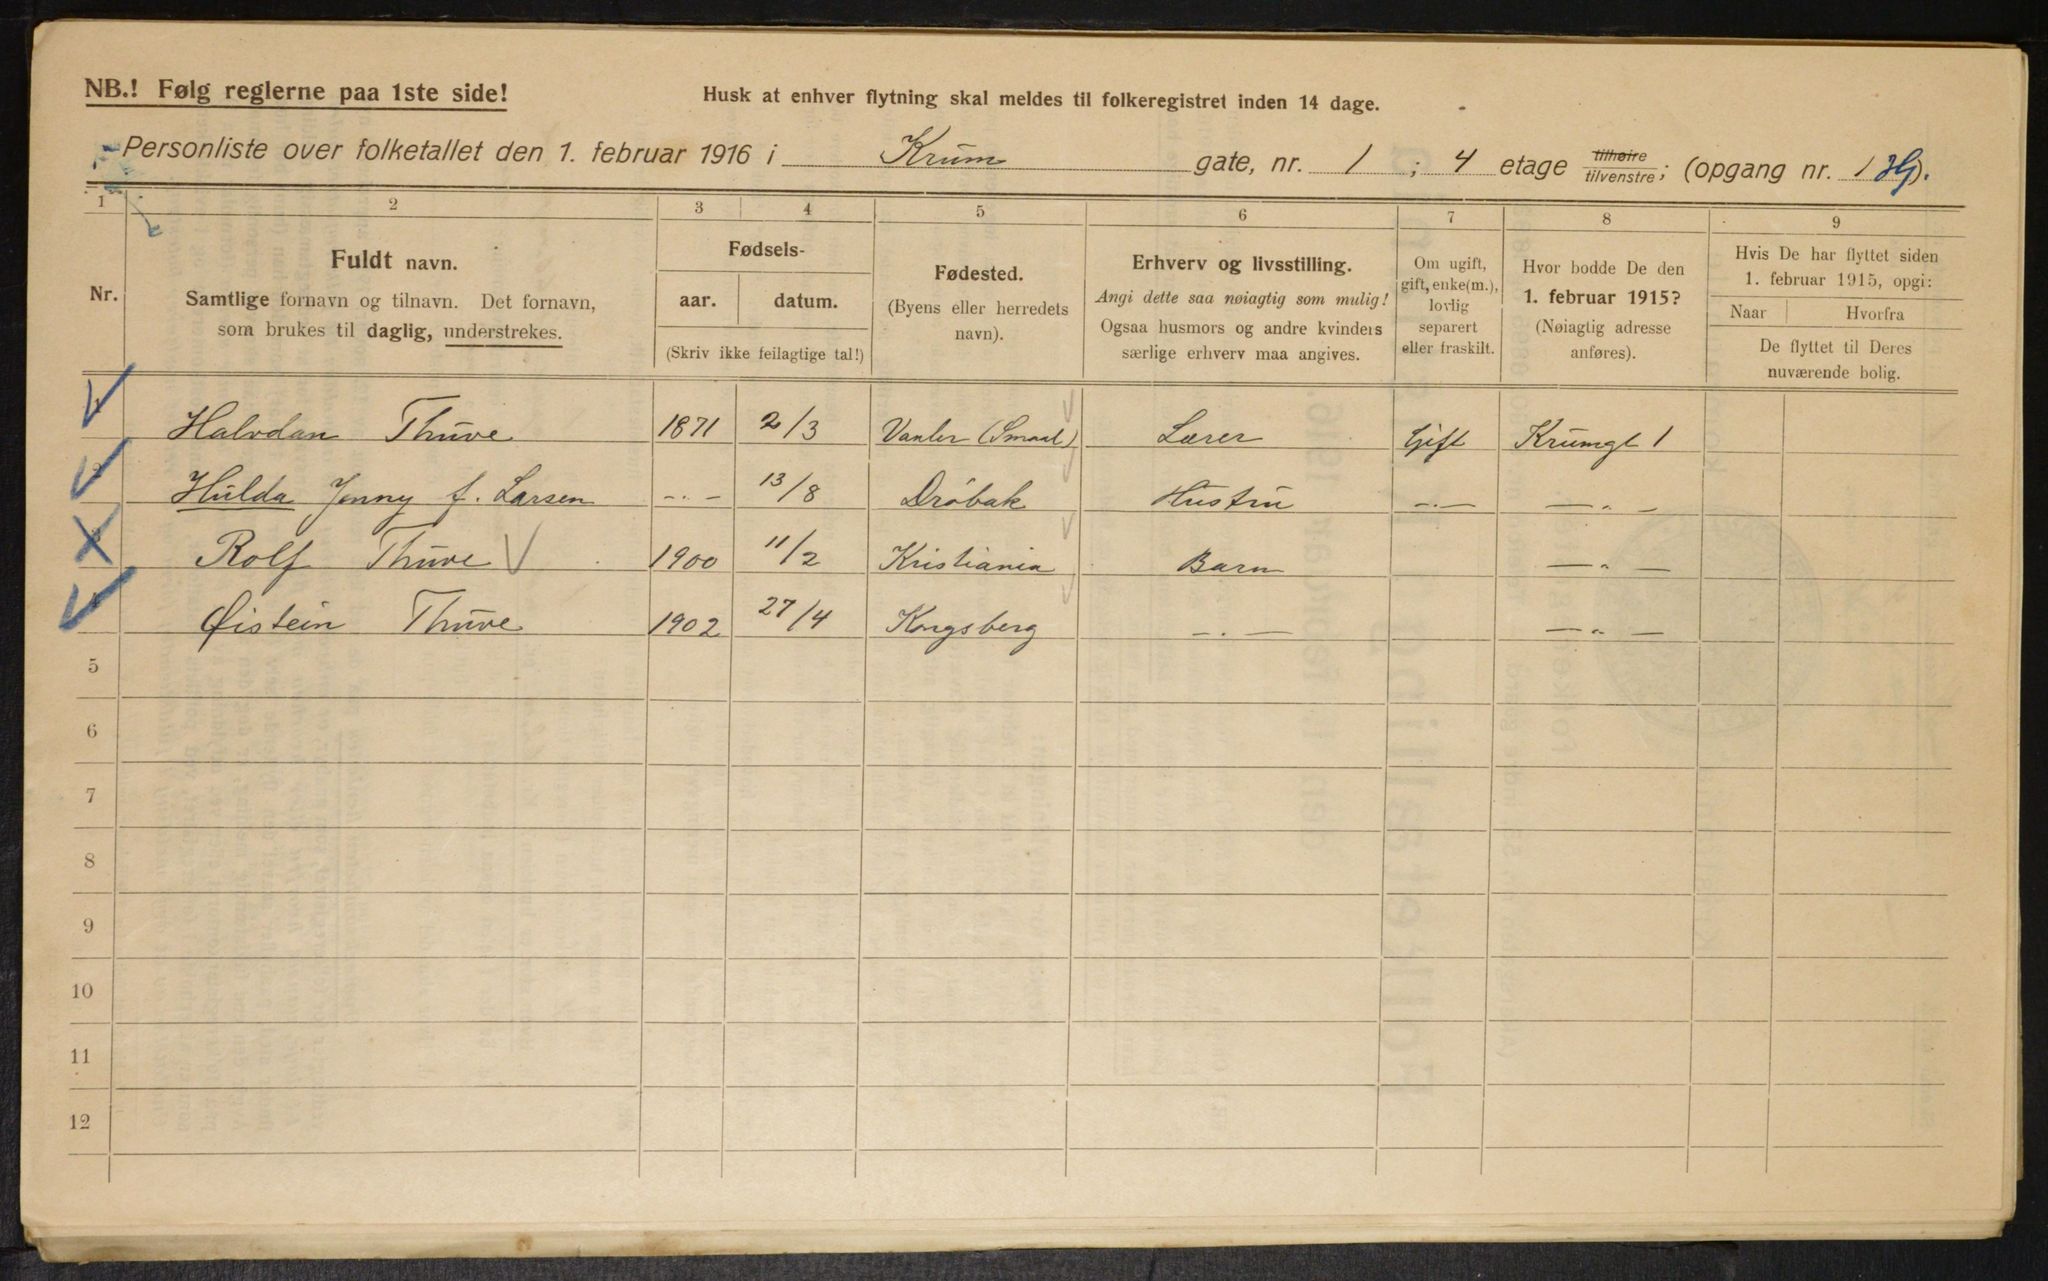 NB.! Følg reglerne paa 1ste side!
Husk at enhver flytning skal meldes til folkeregistret inden 14 dage.
Personliste over folketallet den 1. februar 1916 i Krum gate, nr. 1 ; 4 etage tilhøire tilvenstre; (opgang nr. 1
1 2 3 4 5 6 7 8 9
Nr.
Fuldt navn.
Samtlige fornavn og tilnavn. Det fornavn,
som brukes til daglig, understrekes.
Fødsels-
aar. datum.
(Skriv ikke feilagtige tal!)
Fødested.
(Byens eller herredets
navn).
Erhverv og livsstilling.
Angi dette saa nøiagtig som mulig!
Ogsaa husmors og andre kvinders
særlige erhverv maa angives.
Om ugift,
gift, enke(m.),
lovlig
separert
eller fraskilt.
Hvor bodde De den
1. februar 1915?
(Nøiagtig adresse
anføres).
Hvis De har flyttet siden
1. februar 1915, opgi:
Naar Hvorfra
De flyttet til Deres
nuværende bolig.
Halvdan Thüve 1871 2/3 Vanler (Smaal) Lærer Gift Krumgt 1
Hulda Jenny f. Larsen -"- 13/8 Drøbak Hustru -"- -"-
Rolf Thüve 1900 11/2 Kristiania Barn -"-
Øistein Thüve 1902 27/4 Kongsberg -"- -"-
5
6
7
8
9
10
11
12